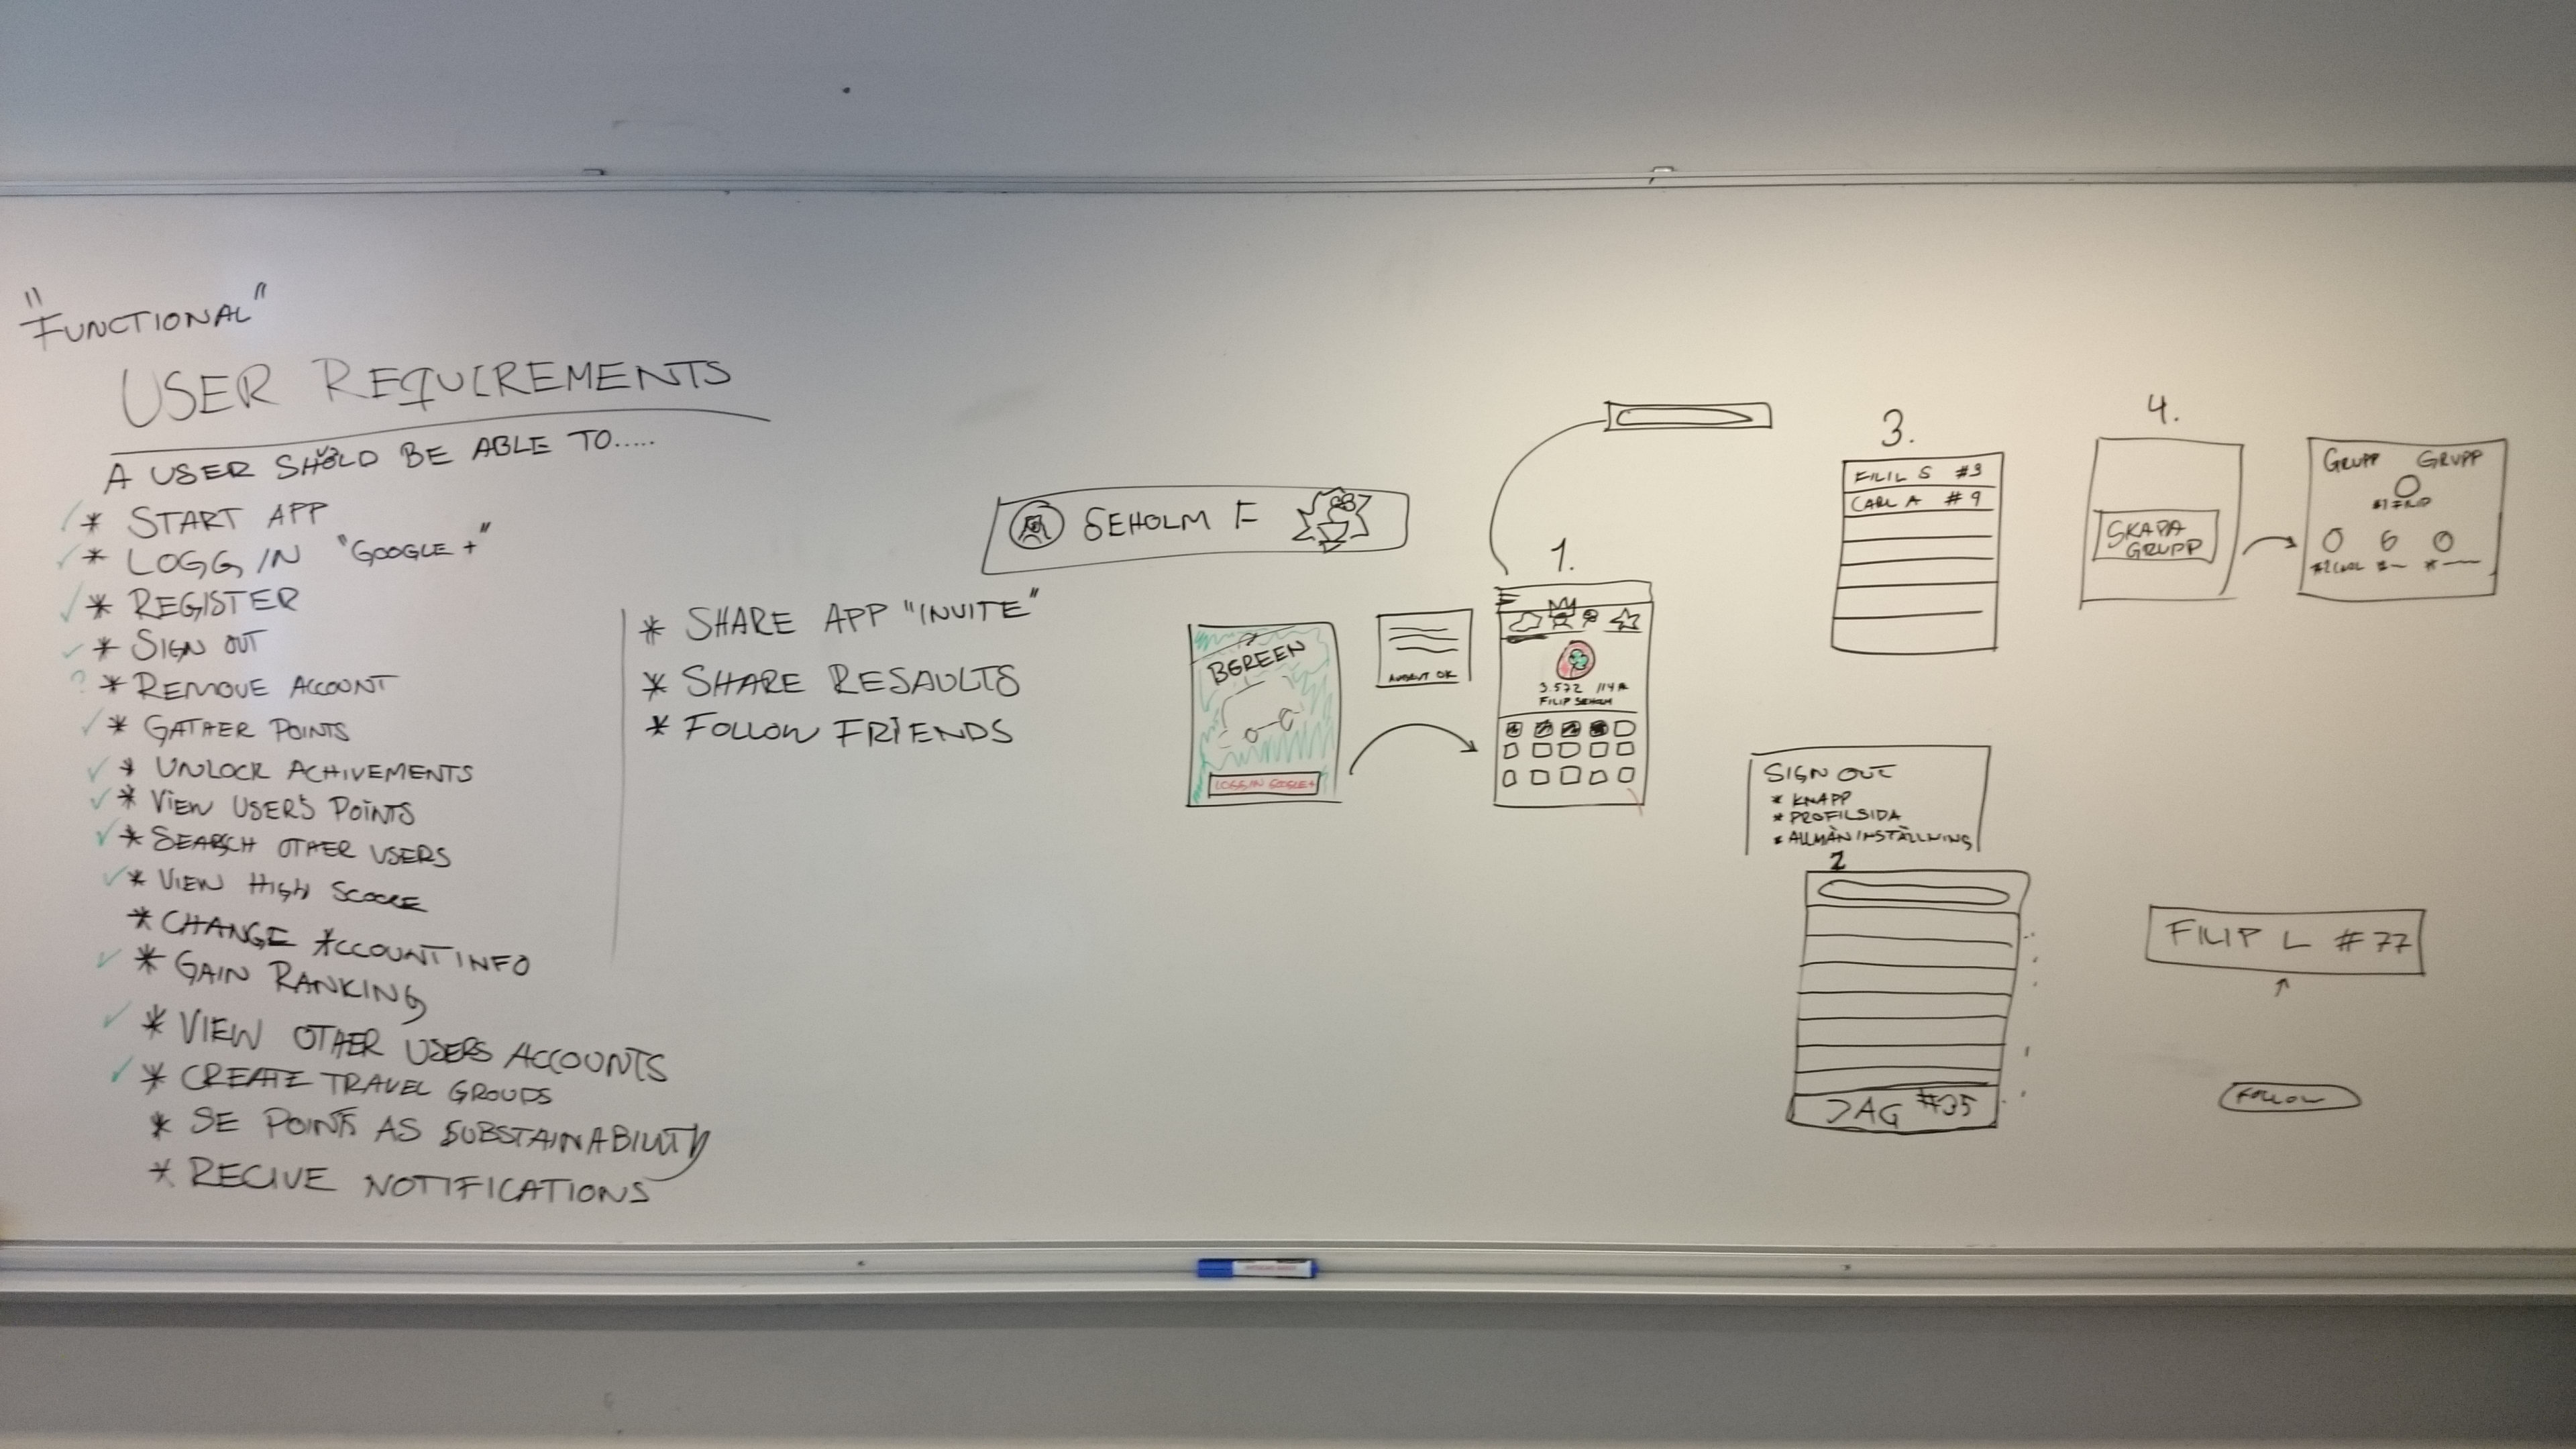 "FUNCTIONAL"
USER REQUIREMENTS
A USER SHOULD BE ABLE TO.....
* START APP
* LOGG IN "GOOGLE +"
* REGISTER
* SIGN OUT
? * REMOVE ACCOUNT
* GATHER POINTS
* UNLOCK ACHIVEMENTS
* VIEW USERS POINTS
* SEARCH OTHER USERS
* VIEW HIGH SCORE
* CHANGE ACCOUNT INFO
* GAIN RANKING
* VIEW OTHER USERS ACCOUNTS
* CREATE TRAVEL GROUPS
* SE POINTS AS SUBSTAINABILITY
* RECIVE NOTIFICATIONS
* SHARE APP "INVITE"
* SHARE RESAULTS
* FOLLOW FRIENDS
SEHOLM F
BGREEN
LOGG IN GOOGLE+
1.
3.572
FILIP SEHOLM
3.
FILIL S #3
CARL A #9
4.
SKAPA
GRUPP
GRUPP GRUPP
#1 FILIP
SIGN OUT
* KNAPP
* PROFILSIDA
* ALLMÄN INSTÄLLNING
2
JAG #35
FILIP L #77
FOLLOW